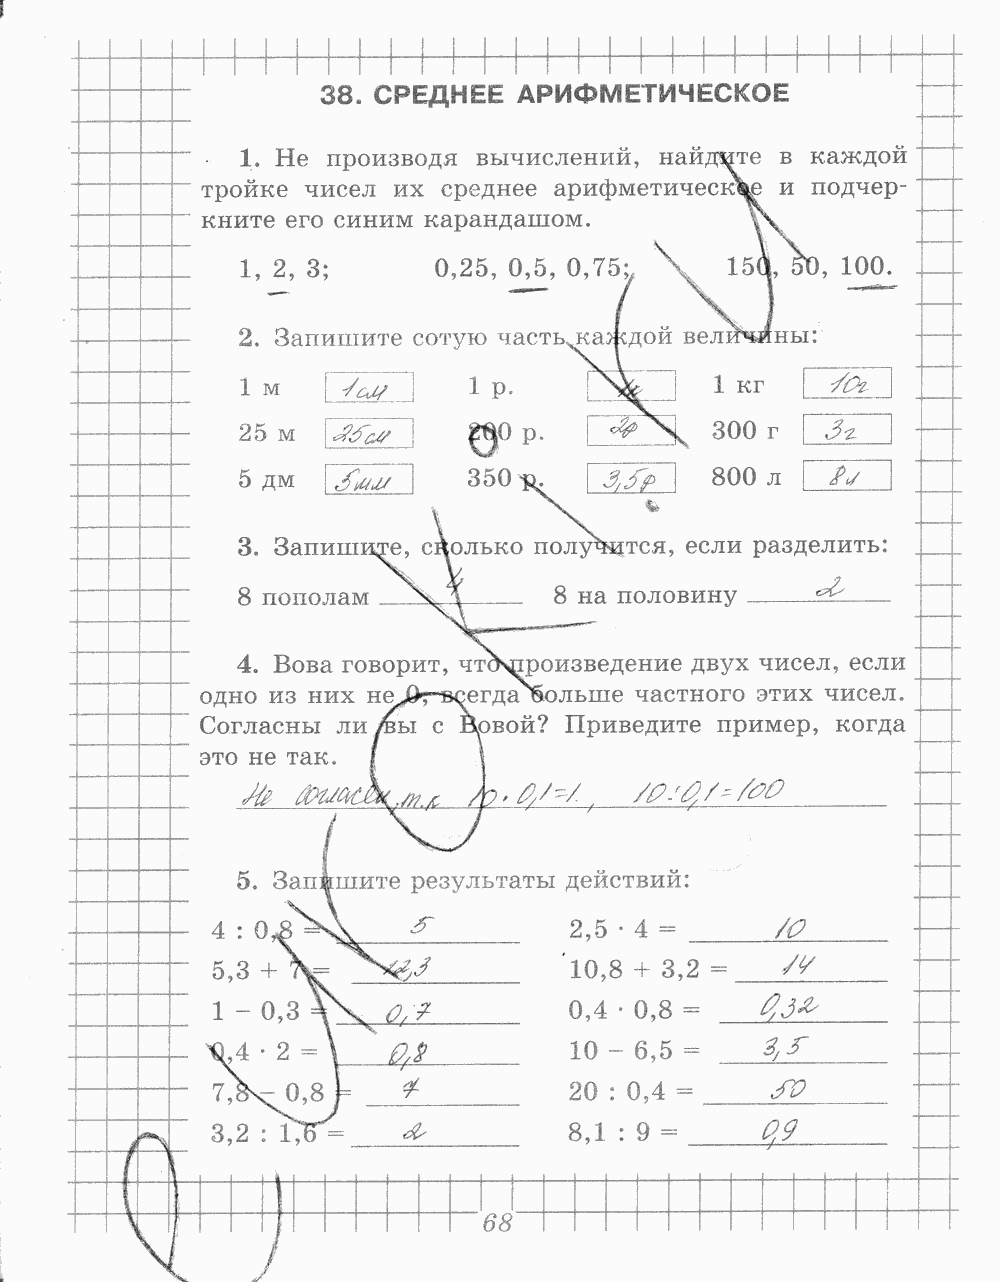 38. СРЕДНЕЕ АРИФМЕТИЧЕСКОЕ
1. Не производя вычислений, найдите в каждой
тройке чисел их среднее арифметическое и подчер-
кните его синим карандашом.
1, 2, 3; 0,25, 0,5, 0,75; 150, 50, 100.
2. Запишите сотую часть каждой величины:
1 м 1см 1 р. 1 кг 10г
25 м 25см 200 р. 2р 300 г 3г
5 дм 5мм 350 р. 3,5р 800 л 8л
3. Запишите, сколько получится, если разделить:
8 пополам 4 8 на половину 2
4. Вова говорит, что произведение двух чисел, если
одно из них не 0, всегда больше частного этих чисел.
Согласны ли вы с Вовой? Приведите пример, когда
это не так.
Не согласен, т.к 10 · 0,1=1, 10:0,1=100
5. Запишите результаты действий:
4 : 0,8 = 5 2,5 · 4 = 10
5,3 + 7 = 12,3 10,8 + 3,2 = 14
1 − 0,3 = 0,7 0,4 · 0,8 = 0,32
0,4 · 2 = 0,8 10 − 6,5 = 3,5
7,8 − 0,8 = 7 20 : 0,4 = 50
3,2 : 1,6 = 2 8,1 : 9 = 0,9
68